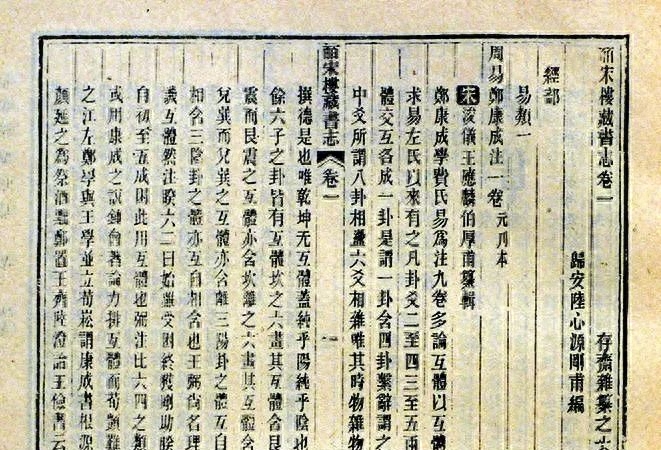 皕宋樓藏書志卷一
存齋雜纂之
歸安陸心源剛甫編
經部
易類一
周易鄭康成注一卷 元刊本
宋浚儀王應麟伯厚甫纂輯
鄭康成學費氏易為注九卷多論互體以互體
求易左氏以來有之凡卦爻二至四三至五兩
體交互各成一卦是謂一卦含四卦繫辭謂之
中爻所謂八卦相盪六爻相雜唯其時物雜物
皕宋樓藏書志 卷一 一
撰德是也唯乾坤无互體蓋純乎陽純乎陰也
餘六子之卦皆有互體坎之六畫其互體含艮
震而艮震之互體亦含坎離之六畫其互體含
兌巽而兌巽之互體亦含離三陽卦之體互自
相含三陰卦之體亦互自相含也王弼尚名理
譏互體然注睽六二曰始雖受困終獲剛助睽
自初至五成困此用互體也弼注比六四之類
或用康成之說鍾會著論力排互體而荀顗難
之江左鄭學與王學並立荀崧謂康成書根源
顏延之為祭酒黜鄭置王齊陸澄詒王儉書云